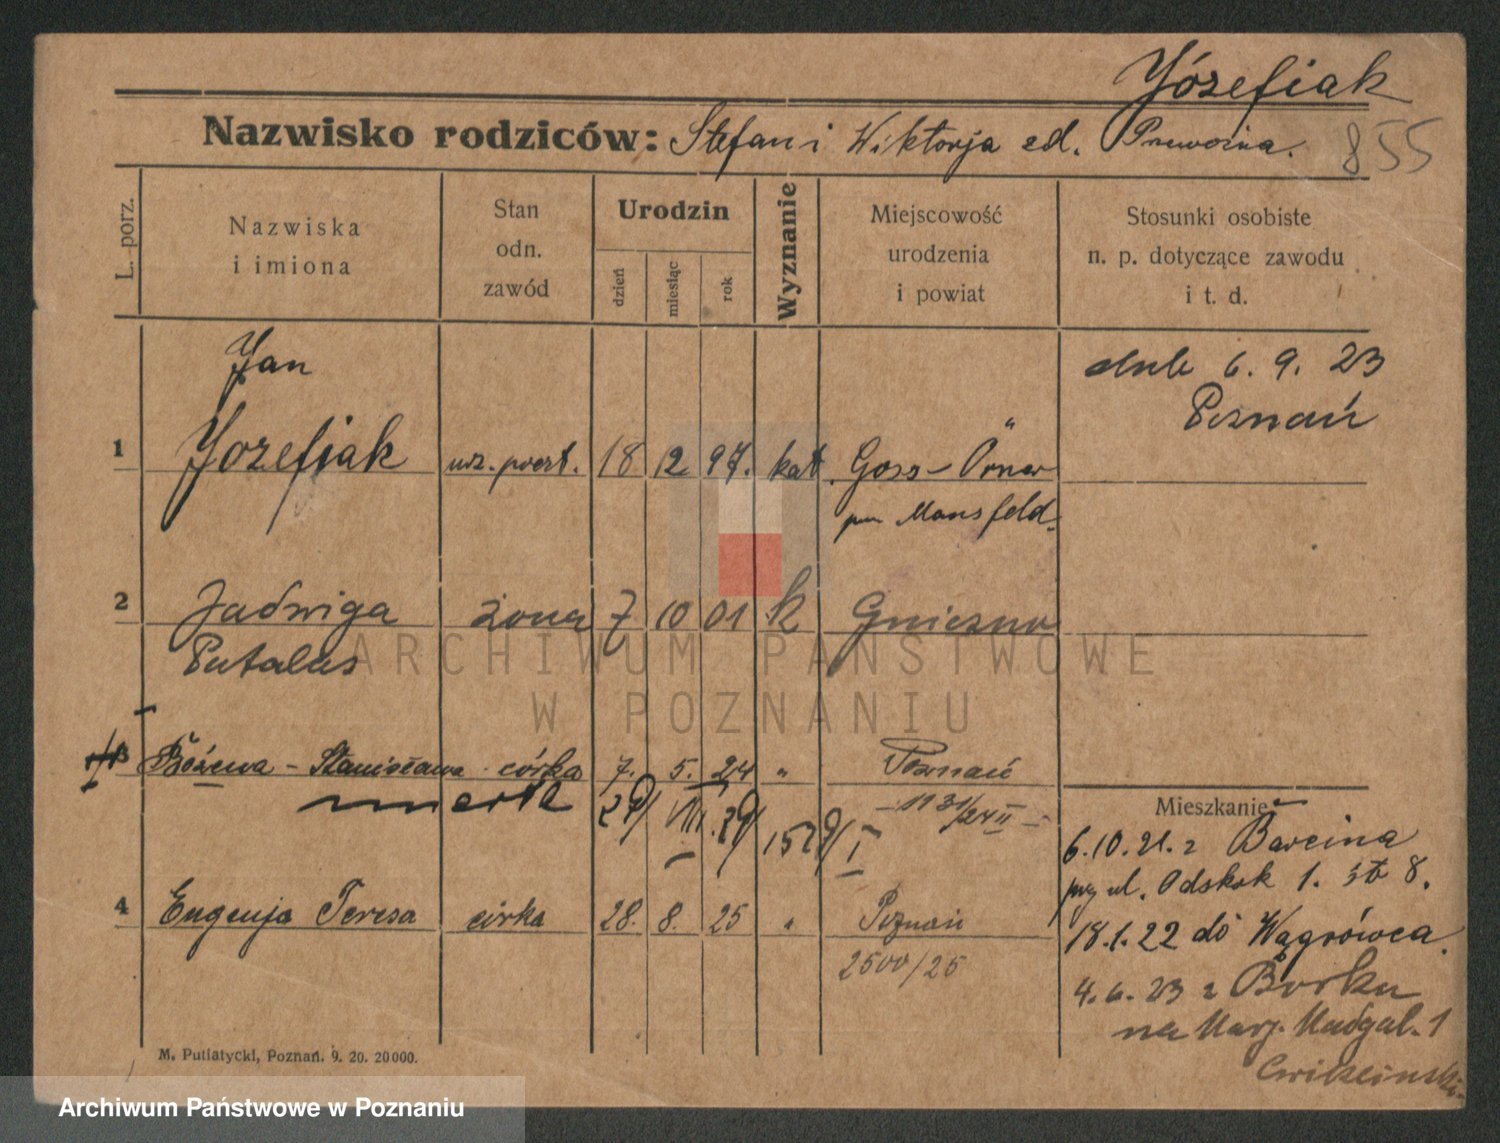 Józefiak
Nazwisko rodziców: Stefan i Wiktorja zd.
855
L. porz.
Nazwiska i imiona
Stan odn. zawód
Urodzin
dzień
miesiąc
rok
Wyznanie
Miejscowość urodzenia i powiat
Stosunki osobiste n. p. dotyczące zawodu i t. d.
Jan
ślub 6. 9. 23
Poznań
1 Jozefiak urz. poczt. 18 12 97. kat. Goss-Örner
pow Mansfeld
2 Jadwiga żona 7 10 01 k Gniezno
Patalas
Stanisława córka 7. 5. 24 " Poznań
1131/24 II
zmarła 29/ VIII. 29/ 1529/I
Mieszkanie
6.10.21. z Barcina
przy ul. 1. 8.
4 Eugenja Teresa córka 28. 8. 25 " Poznań
2500/25
18.1.22 do Wągrówca.
4.6.23 z Borku
na Marj. Magdal. 1
M. Putiatycki, Poznań. 9. 20. 20000.
ARCHIWUM PAŃSTWOWE
W POZNANIU
Archiwum Państwowe w Poznaniu